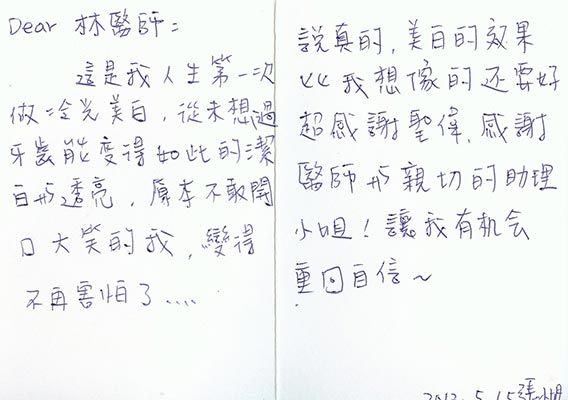 Dear 林醫師：
這是我人生第一次
做冷光美白，從未想過
牙齒能變得如此的潔
白與透亮，原本不敢開
口大笑的我，變得
不再害怕了....
說真的，美白的效果
比我想像的还要好
超感謝聖偉、感謝
醫師与親切的助理
小姐！讓我有机会
重回自信～
2012.5.15